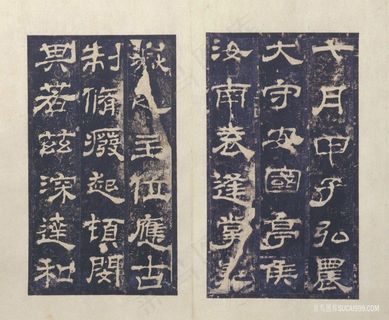 七月甲子弘農
大守安國亭侯
汝南袁逢掌華
嶽之主位應古
制脩癈起頓閔
其若茲深達和
SUCAI999.COM